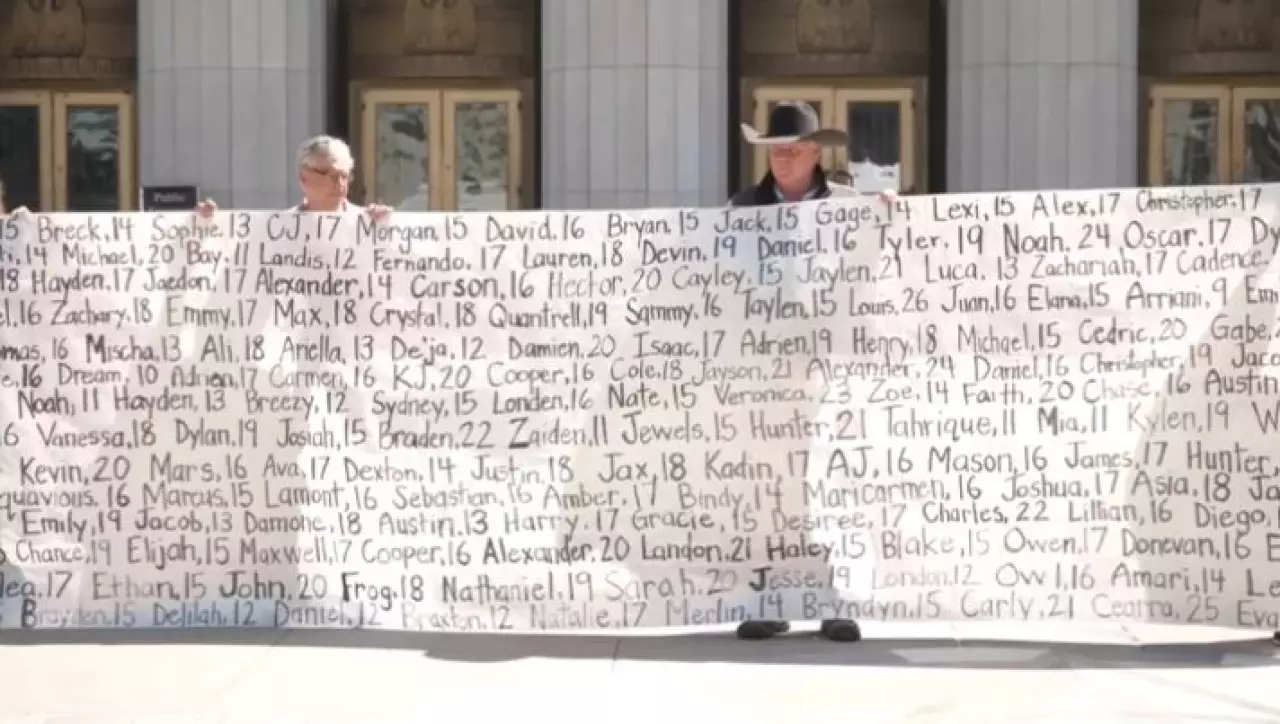 Public
15 Breck, 14 Sophie. 13 CJ, 17 Morgan, 15 David, 16 Bryan, 15 Jack, 15 Gage, 14 Lexi, 15 Alex, 17 Christopher, 17
14 Michael, 20 Bay, 11 Landis, 12 Fernando, 17 Lauren, 18 Devin, 19 Daniel, 16 Tyler, 19 Noah, 24 Oscar, 17
18 Hayden, 17 Jaedon, 17 Alexander, 14 Carson, 16 Hector, 20 Cayley, 15 Jaylen, 21 Luca, 13 Zachariah, 17 Cadence,
16 Zachary, 18 Emmy, 17 Max, 18 Crystal, 18 Quantrell, 19 Sammy, 16 Taylen, 15 Louis, 26 Juan, 16 Elana, 15 Arriani, 9
16 Mischa, 13 Ali, 18 Ariella, 13 De'ja, 12 Damien, 20 Isaac, 17 Adrien, 19 Henry, 18 Michael, 15 Cedric, 20 Gabe,
16 Dream, 10 Adrien, 17 Carmen, 16 KJ, 20 Cooper, 16 Cole, 18 Jayson, 21 Alexander, 24 Daniel, 16 Christopher, 19
Noah, 11 Hayden, 13 Breezy, 12 Sydney, 15 Londen, 16 Nate, 15 Veronica, 23 Zoe, 14 Faith, 20 Chase, 16 Austin
Vanessa, 18 Dylan, 19 Josiah, 15 Braden, 22 Zaiden, 11 Jewels, 15 Hunter, 21 Tahrique, 11 Mia, 11 Kylen, 19
Kevin, 20 Mars, 16 Ava, 17 Dexton, 14 Justin, 18 Jax, 18 Kadin, 17 AJ, 16 Mason, 16 James, 17 Hunter,
quavious. 16 Marcus, 15 Lamont, 16 Sebastian, 16 Amber, 17 Bindy, 14 Maricarmen, 16 Joshua, 17 Asia, 18
Emily, 19 Jacob, 13 Damone, 18 Austin, 13 Harry, 17 Gracie, 15 Desiree, 17 Charles, 22 Lillian, 16 Diego,
Chance, 19 Elijah, 15 Maxwell, 17 Cooper, 16 Alexander, 20 Landon, 21 Haley, 15 Blake, 15 Owen, 17 Donevan, 16
17 Ethan, 15 John, 20 Frog, 18 Nathaniel, 19 Sarah, 20 Jesse, 19 London, 12 Owl, 16 Amari, 14
Brayden, 15 Delilah, 12 Daniel, 12 Braxton, 12 Natalie, 17 Merlin, 14 Bryndyn, 15 Carly, 21 Cearra, 25